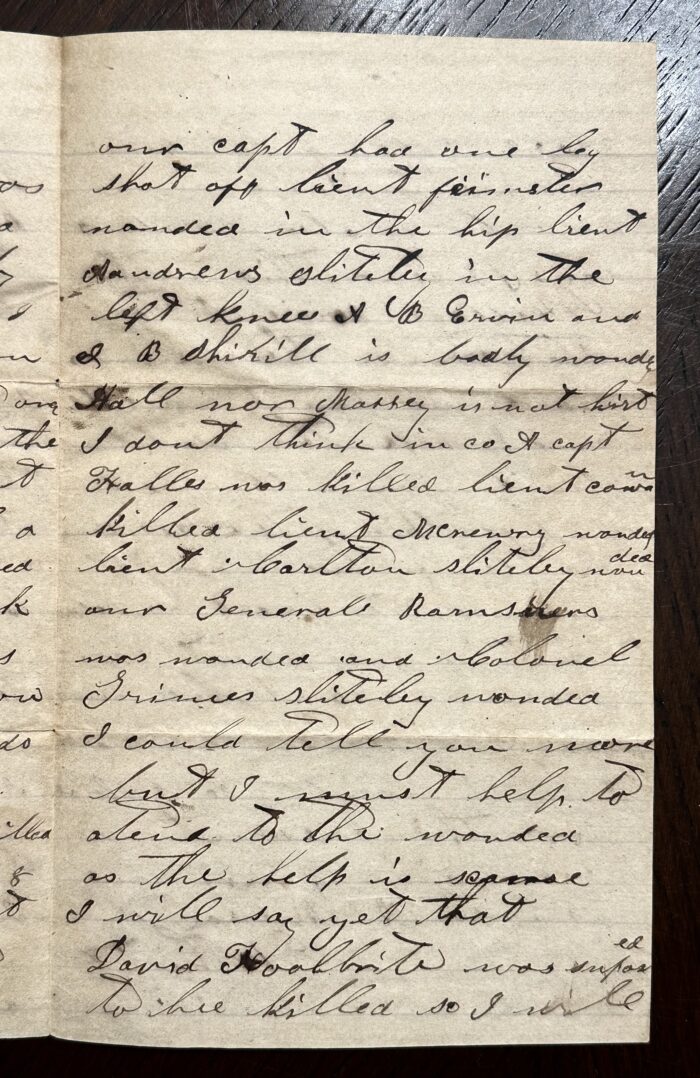 our capt had one leg
shot off lieut feimster
wonded in the hip lieut
Aandrews sliteley in the
left knee A B Ervin and
J B Shirill is badly wonde
Hall nor Massey is not hirt
I dont think in co A capt
Halles was killed lieut
killed lieut Mcrewry wonded
lieut Carlton sliteley woun ded
our Generall Ramsuers
was wonded and Colonel
Grimes sliteley wonded
I could tell you more
but I must help to
atend to the wonded
as the help is scarse
I will say yet that
David Hoolbrite was supos ed
to bee killed so I will
os
on
one
the
t
a
ed
k
s
ow
do
illed
&
t